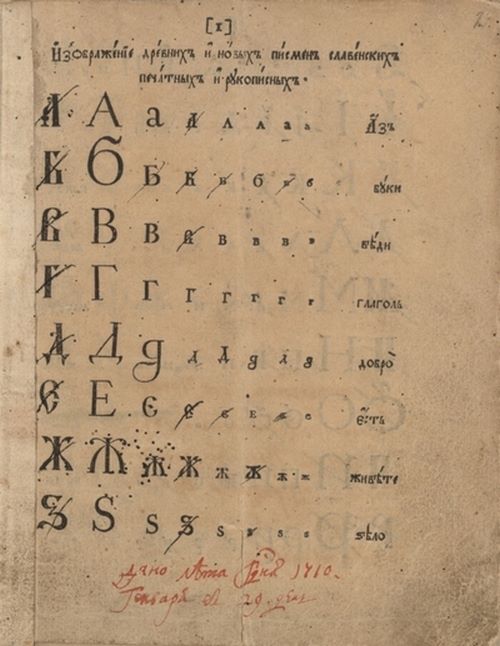 [1]
Изѡбраженїе древнихъ и новыхъ писменъ славенскихъ
печатныхъ и рꙋкописныхъ.
А А а а а а а а Азъ
Б Б Б Б Б Б Б Б бꙋки
В В В В В В В В вѣди
Г Г Г Г Г Г Г Г глаголь
Д Д д д Д д д д добро
Є Е є є є є є є єсть
Ж Ж ж ж ж ж ж ж живѣте
Ѕ Ѕ ѕ Ѕ ѕ ѕ ѕ ѕ ѕѣло
Дано лѣта 1710.
Генваря 29. дня